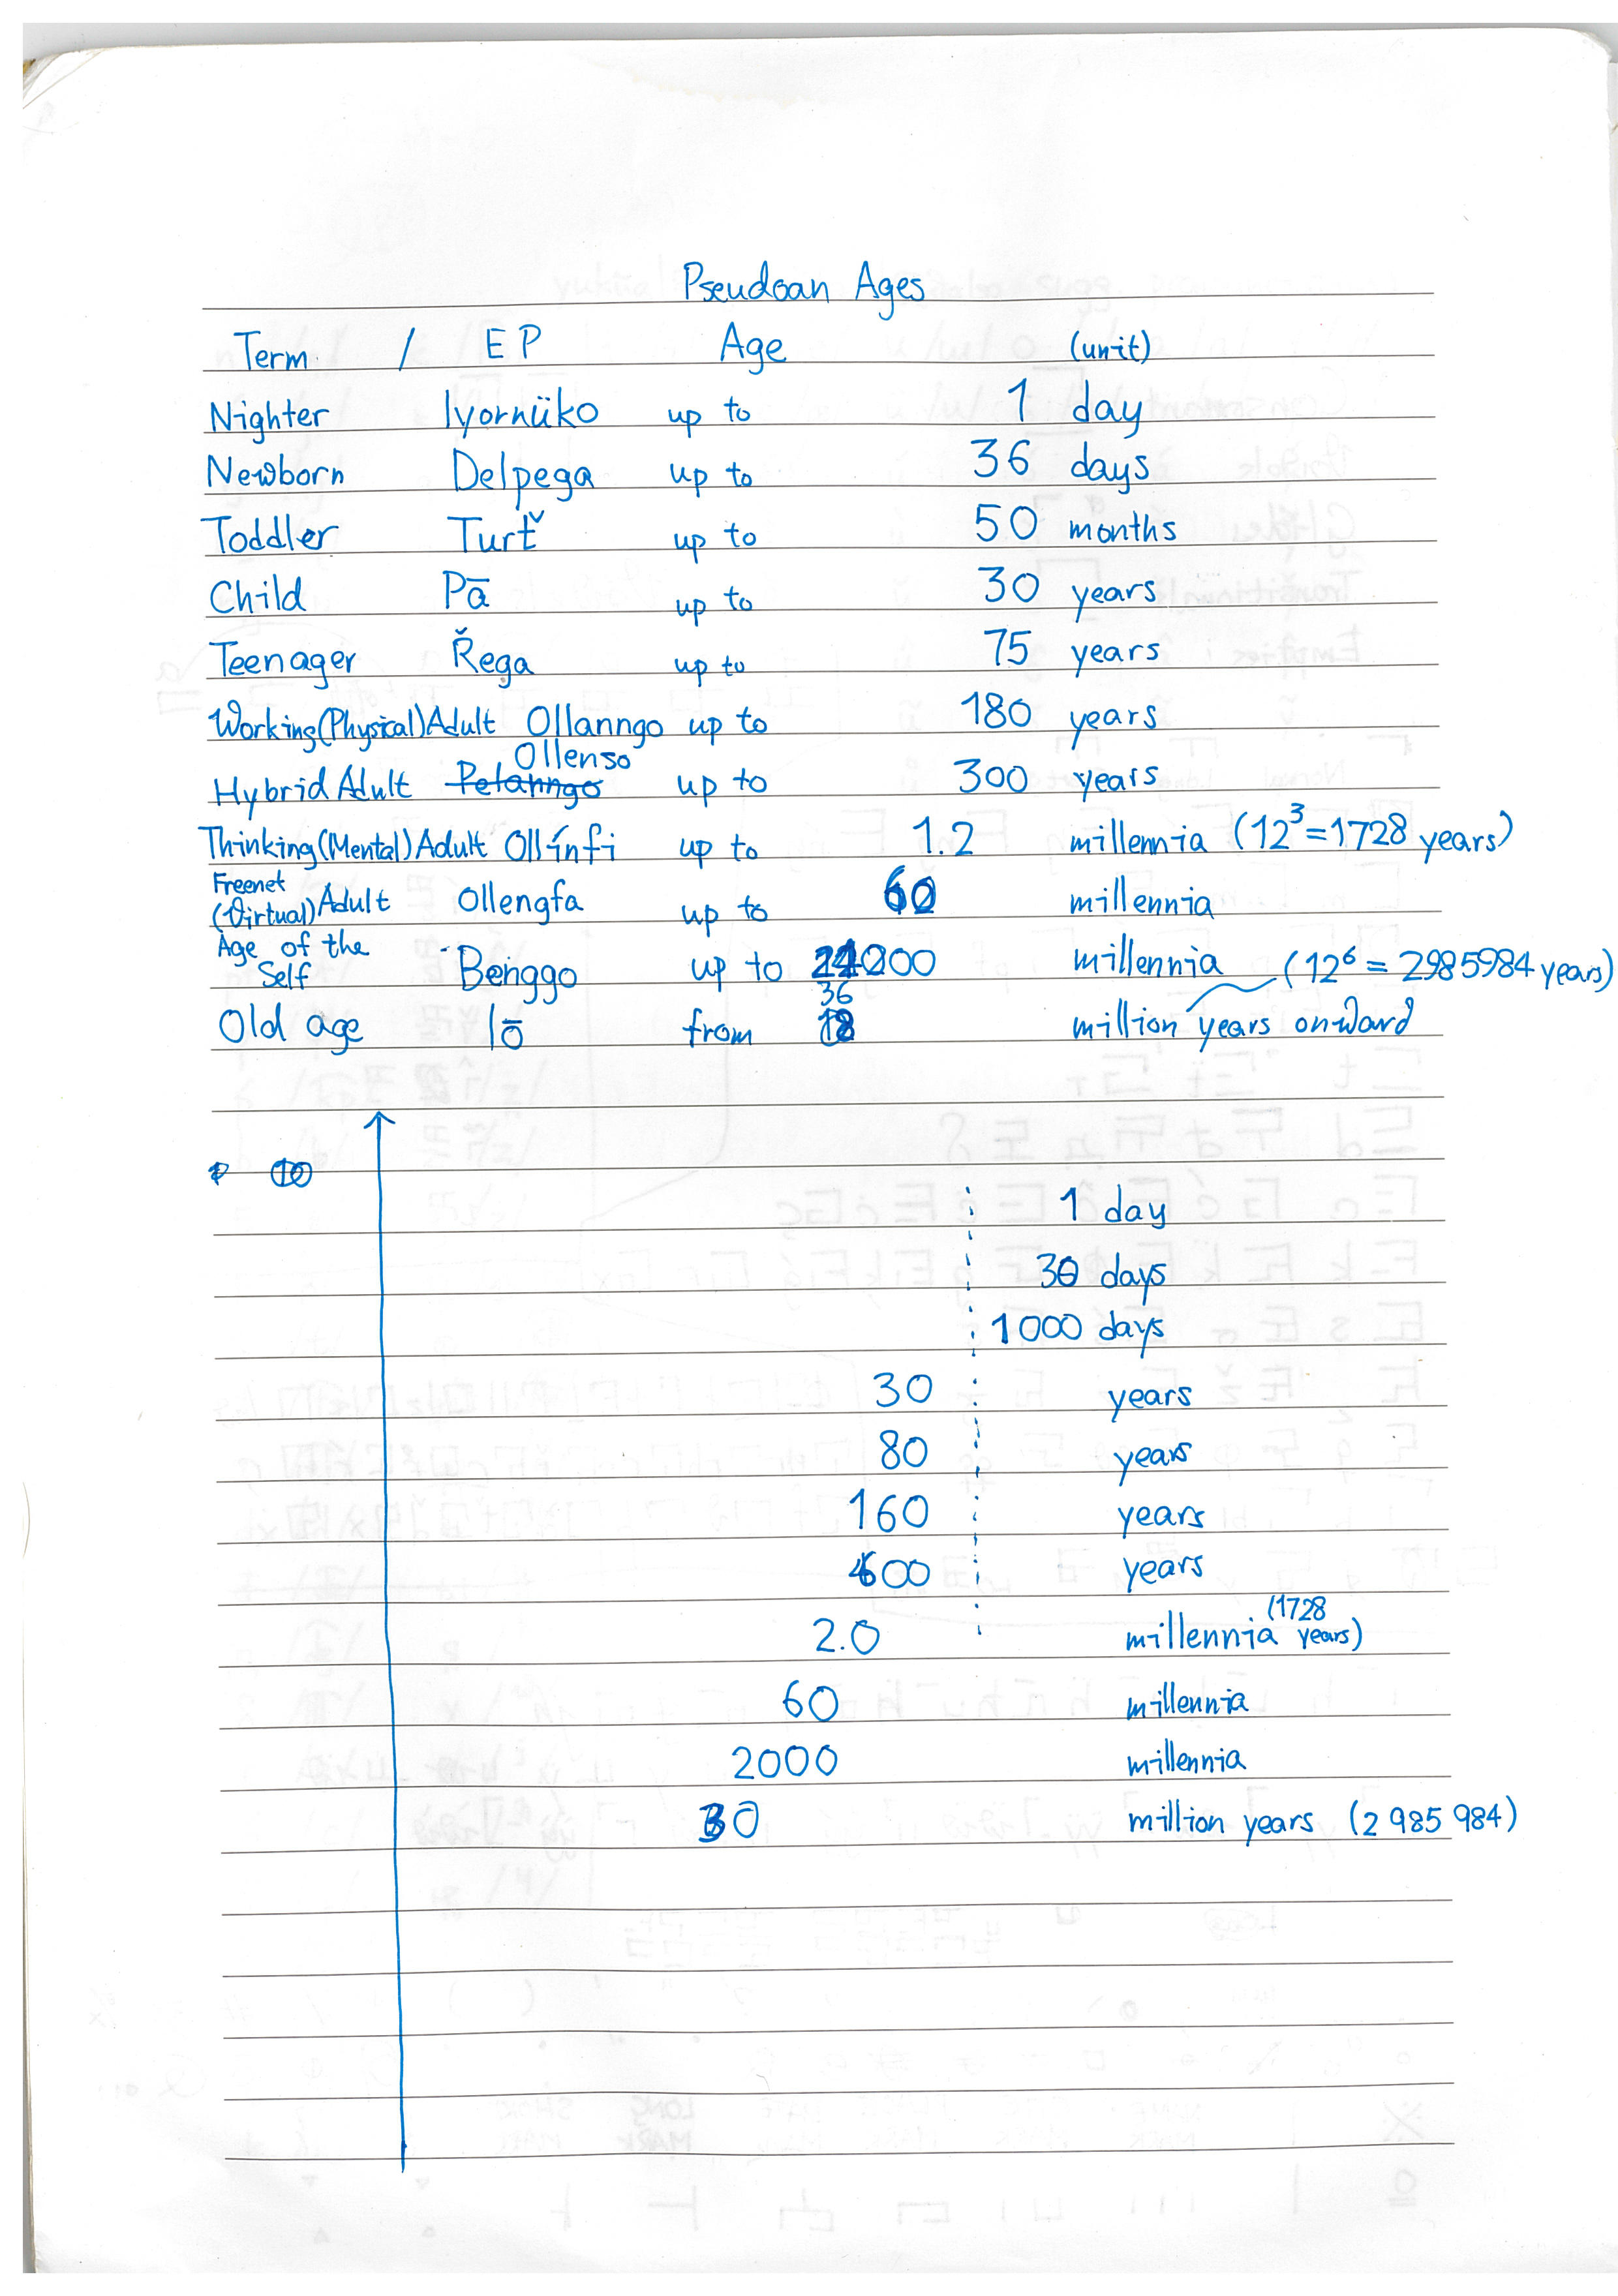 Pseudoan Ages
Term / EP Age (unit)
Nighter Iyornüko up to 1 day
Newborn Delpega up to 36 days
Toddler up to 50 months
Child Pā up to 30 years
Teenager Řega up to 75 years
Working (Physical) Adult Ollanngo up to 180 years
Ollenso
Hybrid Adult Pelanngo up to 300 years
Thinking (Mental) Adult Ollínfi up to 1.2 millennia (12³=1728 years)
Freenet
(Virtual) Adult Ollengfa up to millennia
Age of the
Self Benggo up to millennia (12⁶ = 2985984 years)
36
Old age Iō from million years onward
1 day
30 days
1000 days
30 years
80 years
160 years
years
2.0 millennia (1728 years)
60 millennia
2000 millennia
30 million years (2 985 984)